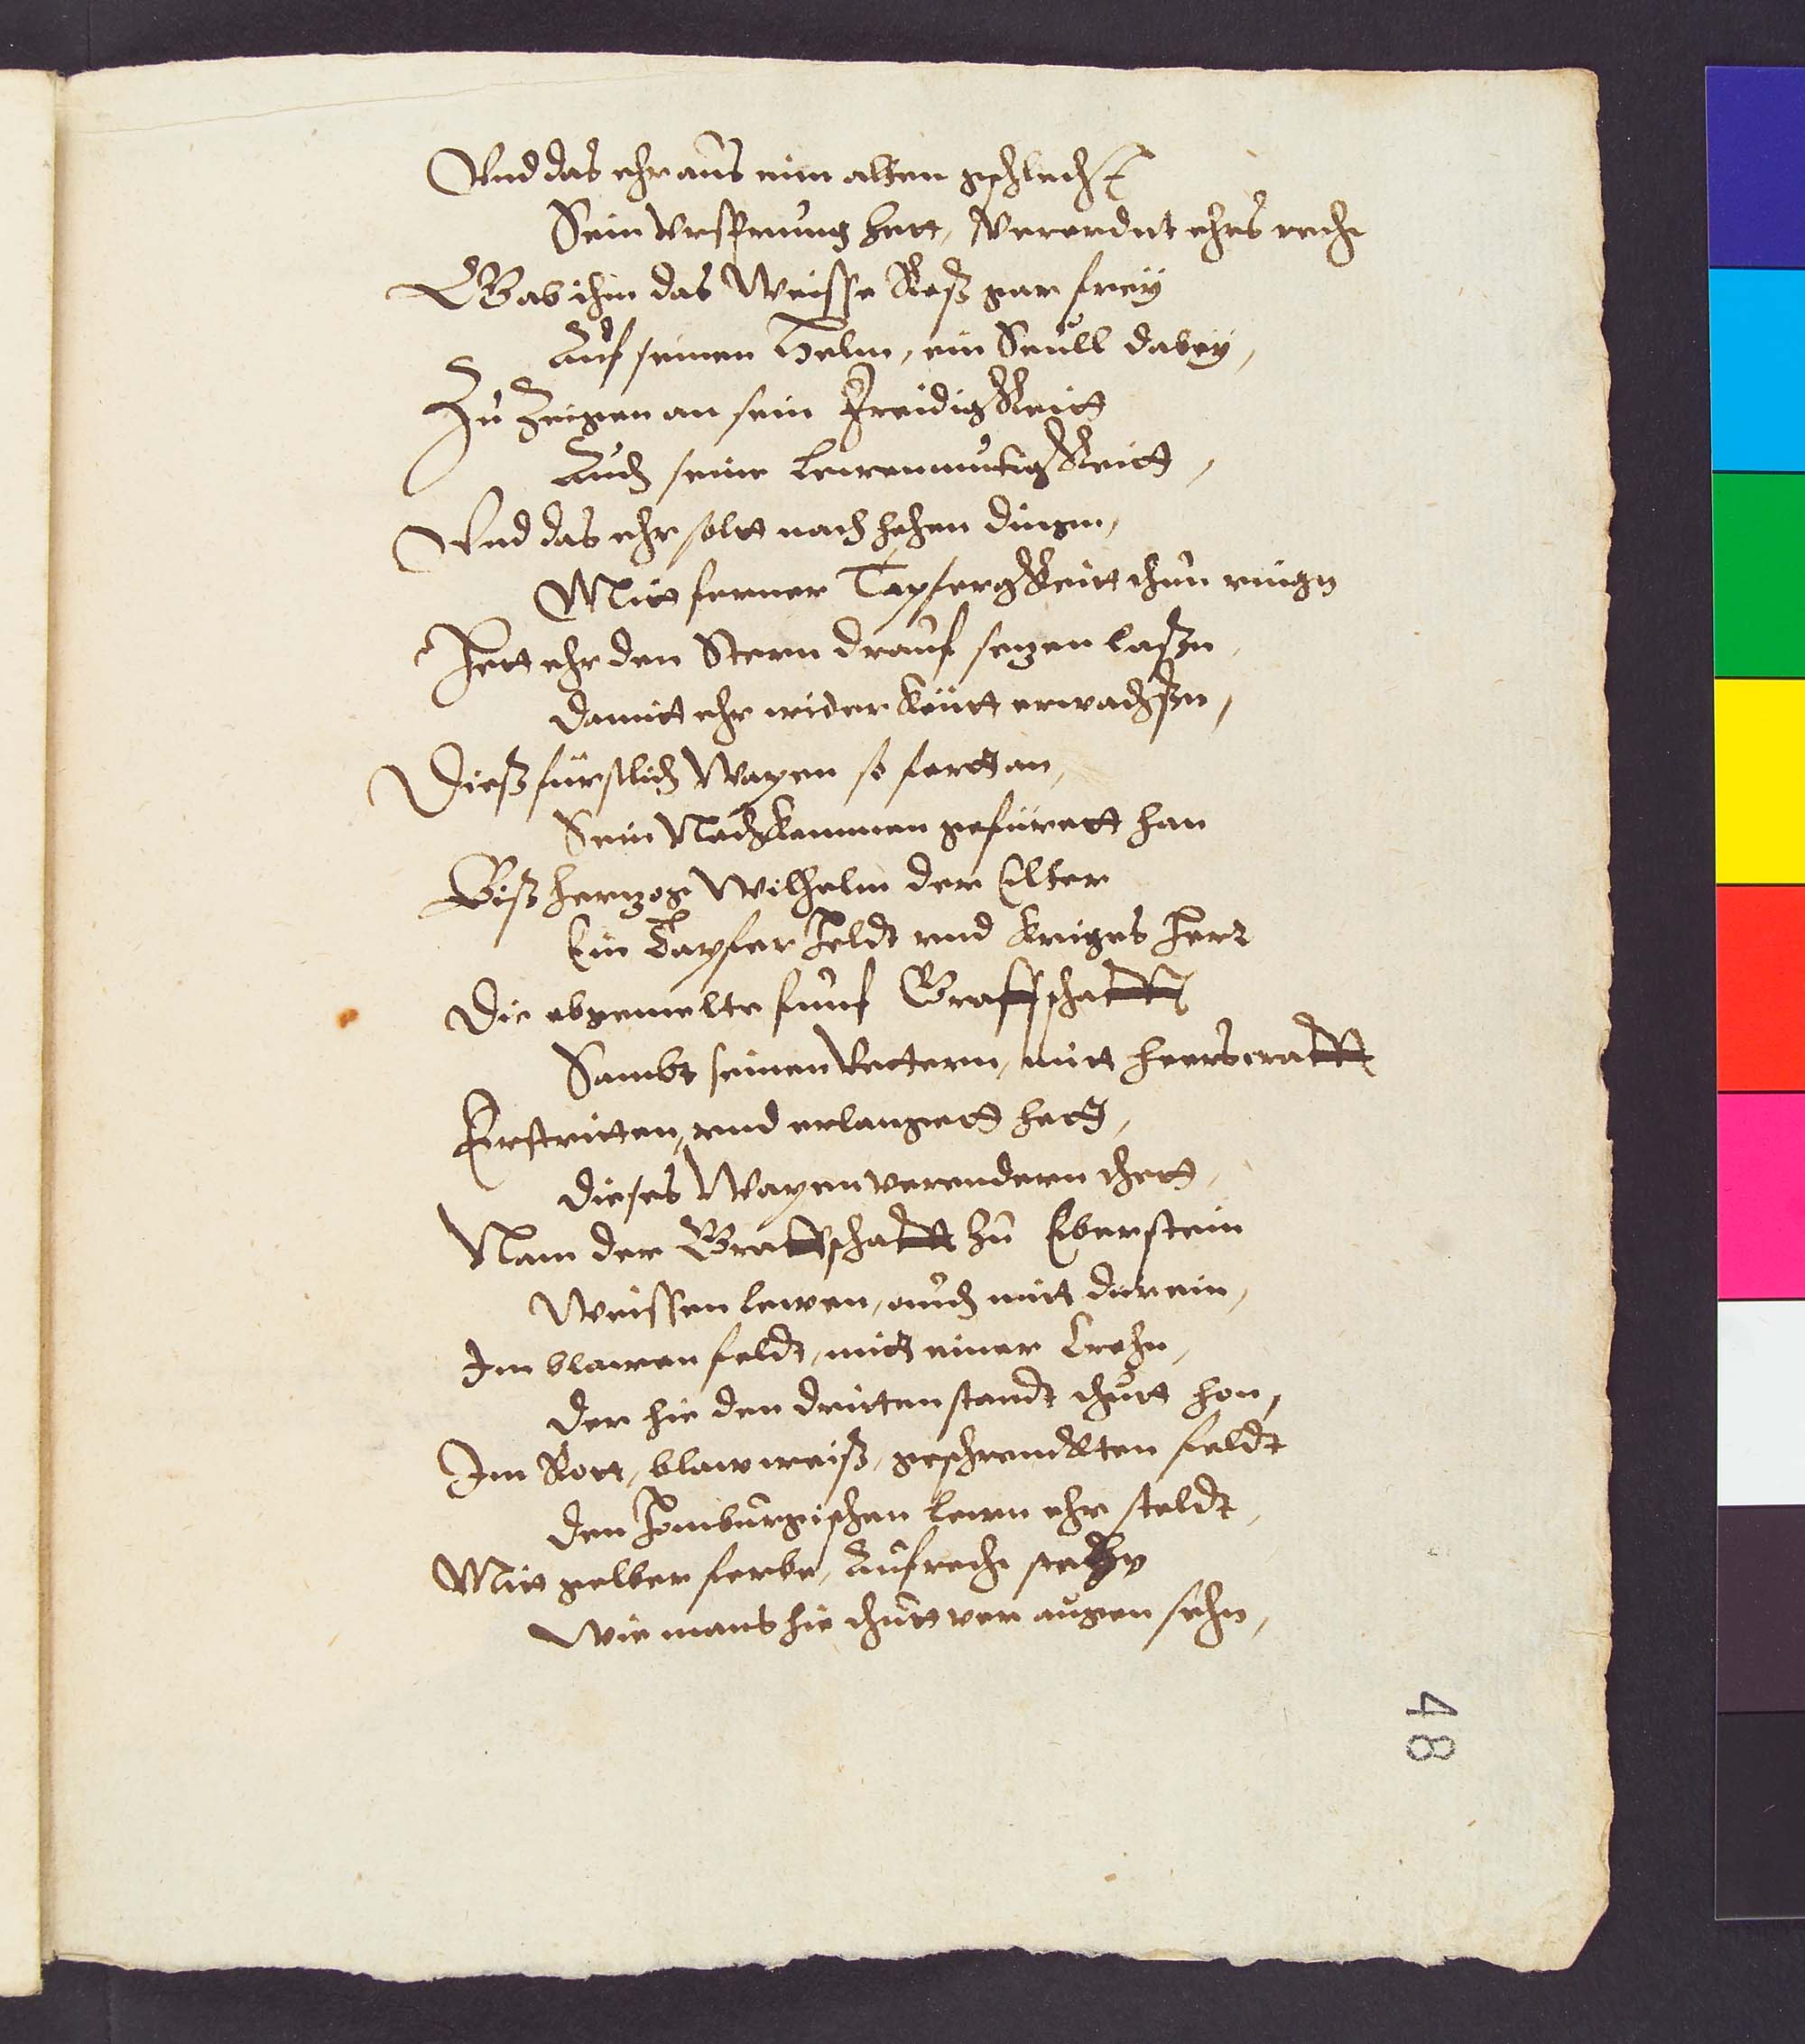 Vnd das ehr aus eim alten geschlecht
Sein vrsprung hett, Verordnt ehrs recht
Gab ihm das Weisse Roß gar frey
Auf seinen Helm, ein Seull dabey,
Zu Zeigen an sein Freidigkeitt
Auch seine Lewenmutigkeitt,
Vnd das ehr soltt nach hohen dingen,
Mitt ferner Tapfergkeitt thun ringn
Hett ehr den Stern drauf setzen laßn,
Damitt ehr wider köntt erwachßn,
Dieß fürstlich Wapen so fortt an,
Sein Nachkommen gefürett han
Biß hertzog Wilhelm der Elter
Ein Tapfer Heldt vnd Kriges Herr
Die obgemelte funf Graffschafft
Sambt seinen Vettern, mitt heers crafft
Erstritten, vnd erlangett hett,
Dieses Wapen verendern thett,
Nam der Graffschafft zu Eberstein
Weissen lewen, auch mitt darein,
Im blawen feldt, mitt einer Crohn,
Der hie den dritten standt thutt hon,
Im Rott, blaw weiß, geschrenckten feldt
Den Homburgischen lewn ehr steldt,
Mitt gelber ferbe, Aufrecht stehn
Wie mans hie thutt vor augen sehn,
48